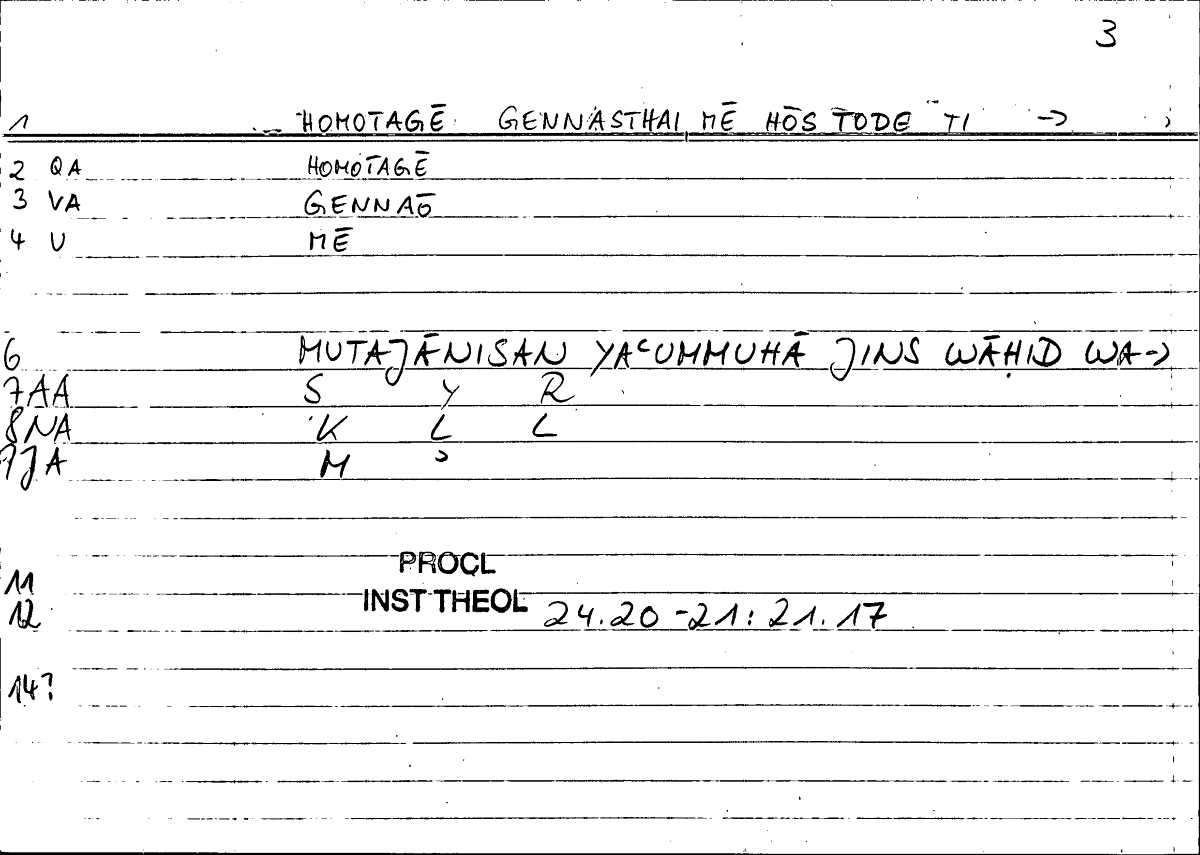 3
1 HOMOTAGĒ GENNASTHAI MĒ HŌS TODE TI →
2 QA HOMOTAGĒ
3 VA GENNAŌ
4 U MĒ
6 MUTAJĀNISAN YAʿUMMUHĀ JINS WĀḤID WA→
7AA S Y R
8NA K L L
9JA M ʾ
11 PROCL
12 INST THEOL 24.20-21: 21.17
14?